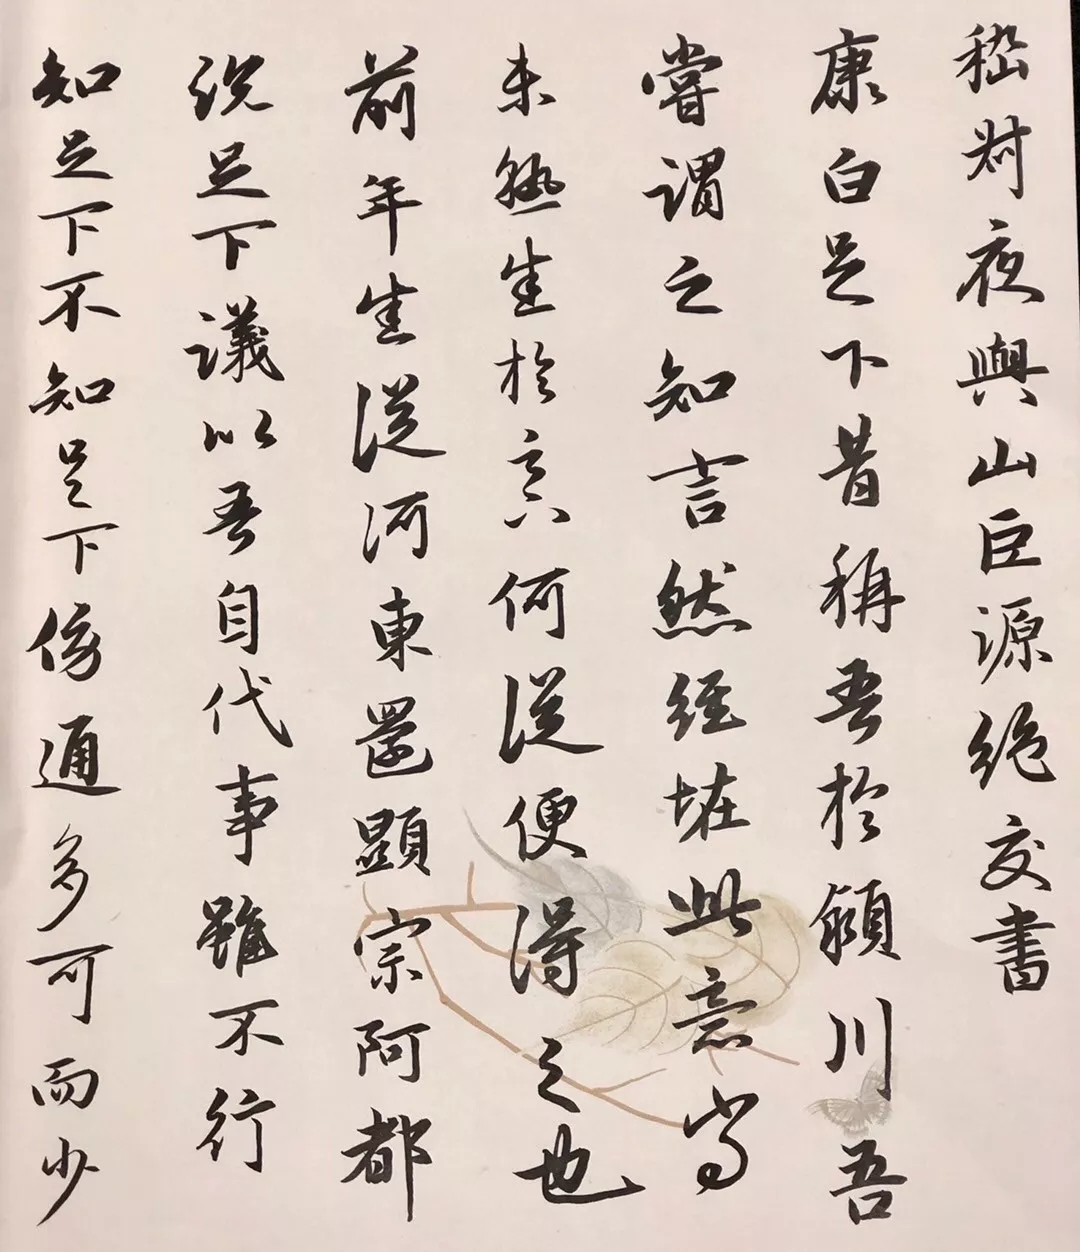 嵇叔夜與山巨源絶交書
康白足下昔稱吾於潁川吾
嘗謂之知言然經怪此意尚
未熟生於何從便得之也
前年生從河東還顯宗阿都
説足下議以吾自代事雖不行
知足下不知足下傍通多可而少